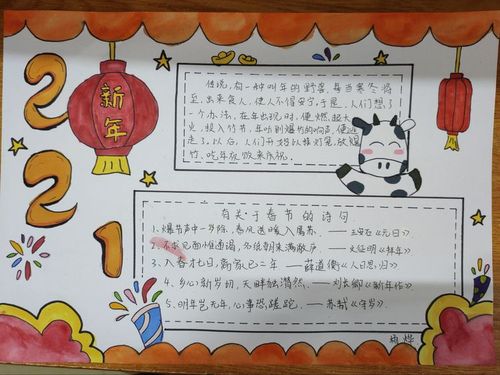 2021
新年
传说，有一种叫年的野兽，每当寒冬将
至，出来食人，使人不得安宁，于是，人们想了
一个办法，在年出现时，便燃起大
火，投入竹节，年听到爆竹的响声，便逃
走了，以后，人们
竹，吃年夜饭来庆祝。
有关于春节的诗句
1、爆竹声中一岁除，春风送暖入屠苏。——王安石《元日》
2、不求见面惟通谒，名纸朝来满敝庐。——文征明《拜年》
3、入春才七日，离家已二年——薛道衡《人日思归》
4、乡心新岁切，天畔独潸然。——刘长卿《新年作》
5、明年岂无年，心事恐蹉跎。——苏轼《守岁》